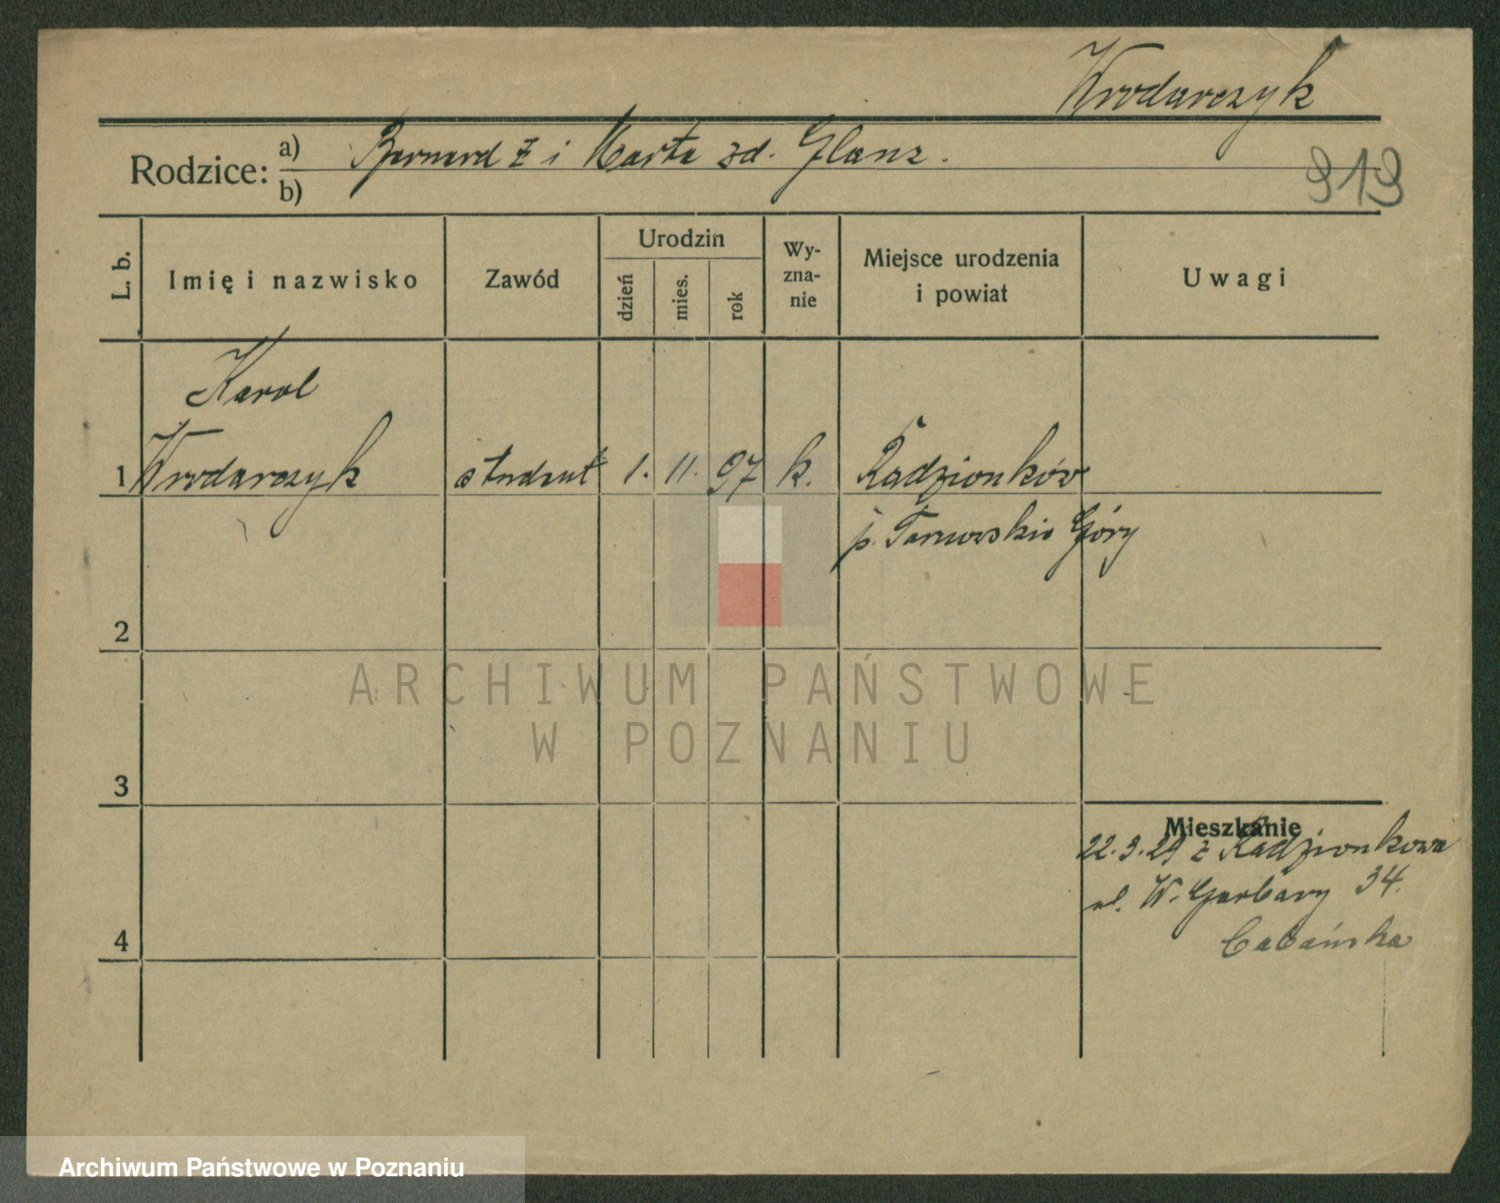 Wrodarczyk
Rodzice: a) Bernard Ƶ i Marta zd. Glanz.
b)
313
L. b.
Imię i nazwisko
Zawód
Urodzin
dzień
mies.
rok
Wy-
zna-
nie
Miejsce urodzenia
i powiat
Uwagi
Karol
1 Wrodarczyk student 1. 11. 97 k. Radzionków
p. Tarnowskie Góry
2
ARCHIWUM PAŃSTWOWE
W POZNANIU
3
Mieszkanie
22.3.29 z Radzionkowa
ul. W. Garbary 34.
4
Archiwum Państwowe w Poznaniu